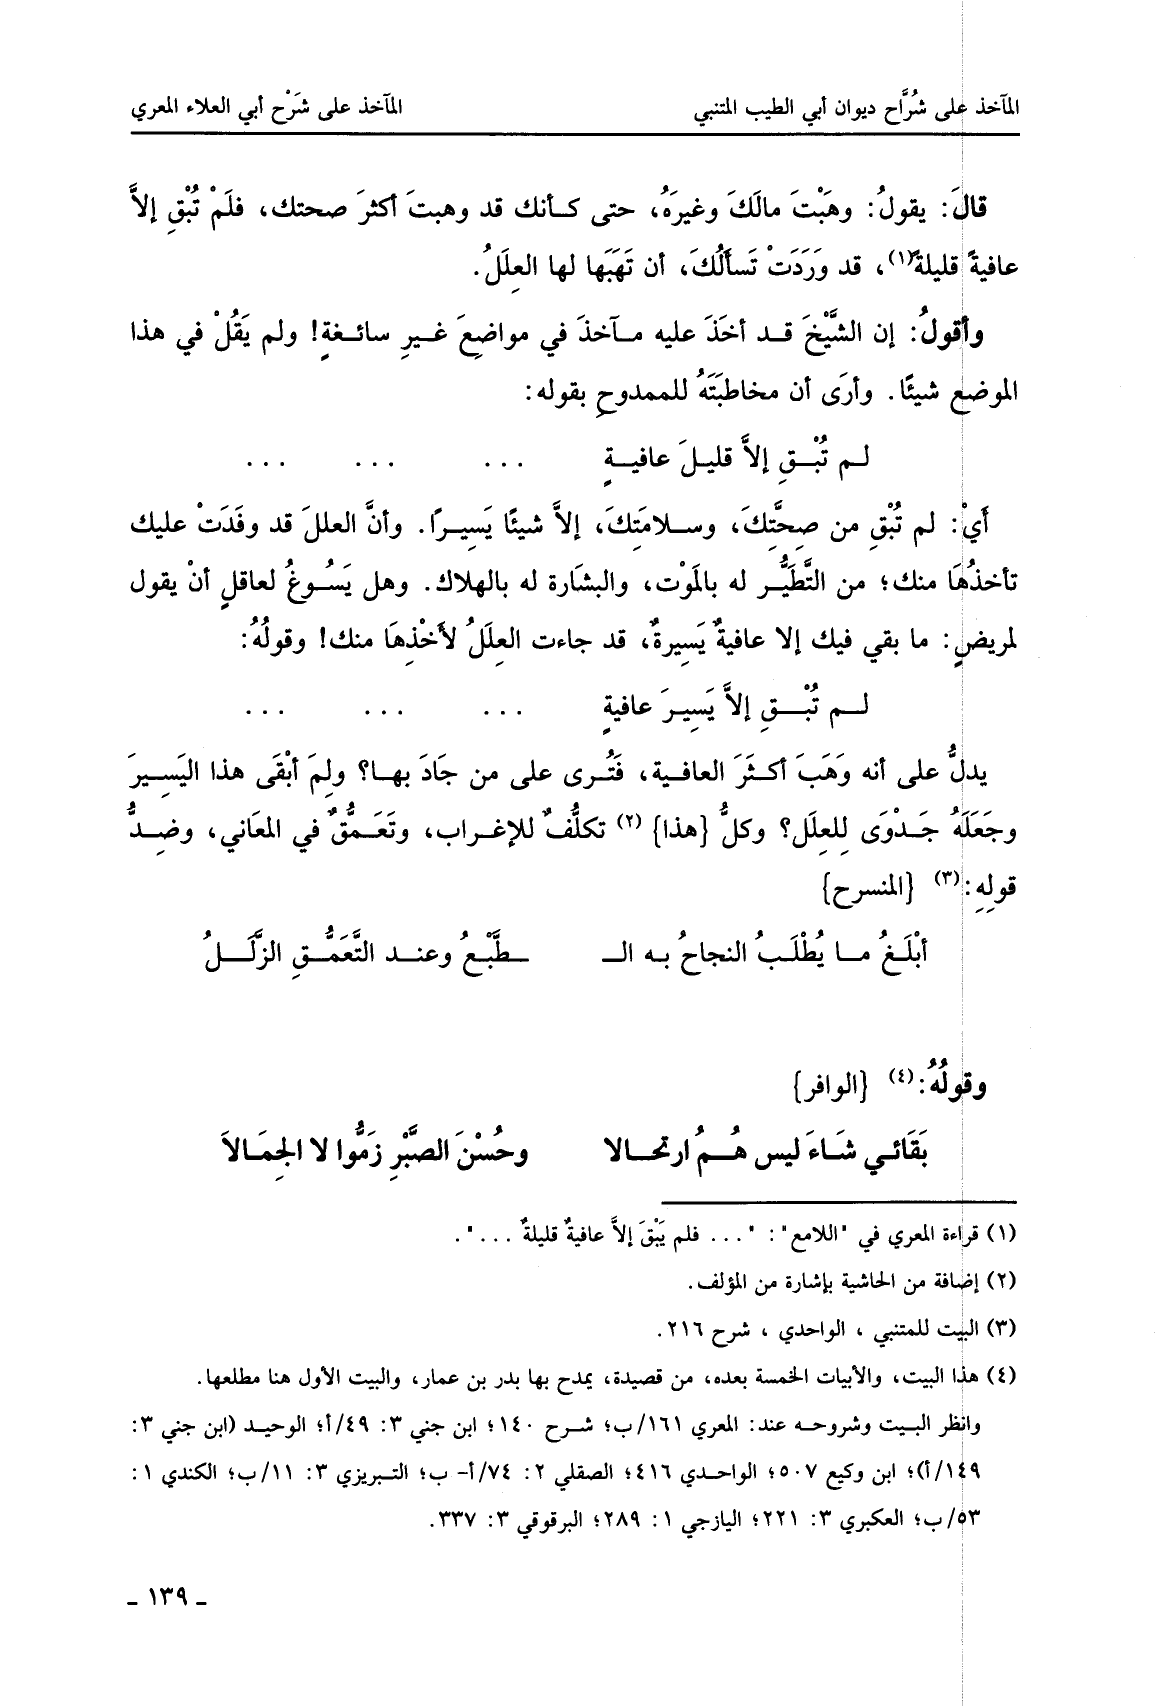 المآخذ على شُرَّاح ديوان أبي الطيب المتنبي المآخذ على شَرْح أبي العلاء المعري
قالَ: يقولُ: وهَبْتَ مالَكَ وغيرَهُ، حتى كأنك قد وهبتَ أكثرَ صحتك، فلَمْ تُبْقِ إلاَّ
عافيةً قليلةً(١)، قد ورَدَتْ تَسألُكَ، أن تَهَبَها لها العِلَلُ.
وأقولُ: إن الشَّيْخَ قد أخَذَ عليه مآخذَ في مواضِعَ غيرِ سائغةٍ! ولم يَقُلْ في هذا
الموضع شيئًا. وأرَى أن مخاطبَتَهُ للممدوحِ بقوله:
لم تُبْقِ إلاَّ قليلَ عافيةٍ ... ... ...
أَيْ: لم تُبْقِ من صِحَّتِكَ، وسلامَتِكَ، إلاَّ شيئًا يَسِيرًا. وأنَّ العللَ قد وفَدَتْ عليك
تأخذُهَا منك؛ من التَّطَيُّر له بالمَوْت، والبشَارة له بالهلاك. وهل يَسُوغُ لعاقلٍ أنْ يقول
لمريضٍ: ما بقي فيك إلا عافيةٌ يَسِيرةٌ، قد جاءت العِلَلُ لأَخْذِهَا منك! وقولُهُ:
لم تُبْقِ إلاَّ يَسِيرَ عافيةٍ ... ... ...
يدلُّ على أنه وَهَبَ أكثَرَ العافية، فَتُرى على من جَادَ بها؟ ولِمَ أبْقَى هذا اليَسِيرَ
وجَعَلَهُ جَدْوَى لِلعِلَل؟ وكلُّ {هذا} (٢) تكلُّفٌ للإغراب، وتَعَمُّقٌ في المعَاني، وضِدُّ
قولِهِ: (٣) {المنسرح}
أبْلَغُ ما يُطْلَبُ النجاحُ به الـ ـطَّبْعُ وعند التَّعَمُّقِ الزَّلَلُ
وقولُهُ: (٤) {الوافر}
بَقَائي شَاءَ ليس هُمُ ارتحالا وحُسْنَ الصبَّرِ زَمُّوا لا الجِمَالاَ
(١) قراءة المعري في "اللامع": "... فلم يَبْقَ إلاَّ عافيةٌ قليلةٌ ...".
(٢) إضافة من الحاشية بإشارة من المؤلف.
(٣) البيت للمتنبي ، الواحدي ، شرح ٢١٦.
(٤) هذا البيت، والأبيات الخمسة بعده، من قصيدة، يمدح بها بدر بن عمار، والبيت الأول هنا مطلعها.
وانظر البيت وشروحه عند: المعري ١٦١/ب؛ شرح ١٤٠؛ ابن جني ٣: ٤٩/أ؛ الوحيد (ابن جني ٣:
١٤٩/أ)؛ ابن وكيع ٥٠٧؛ الواحدي ٤١٦؛ الصقلي ٢: ٧٤/أ- ب؛ التبريزي ٣: ١١/ب؛ الكندي ١:
٥٣/ب؛ العكبري ٣: ٢٢١؛ اليازجي ١: ٢٨٩؛ البرقوقي ٣: ٣٣٧.
ـ ١٣٩ ـ